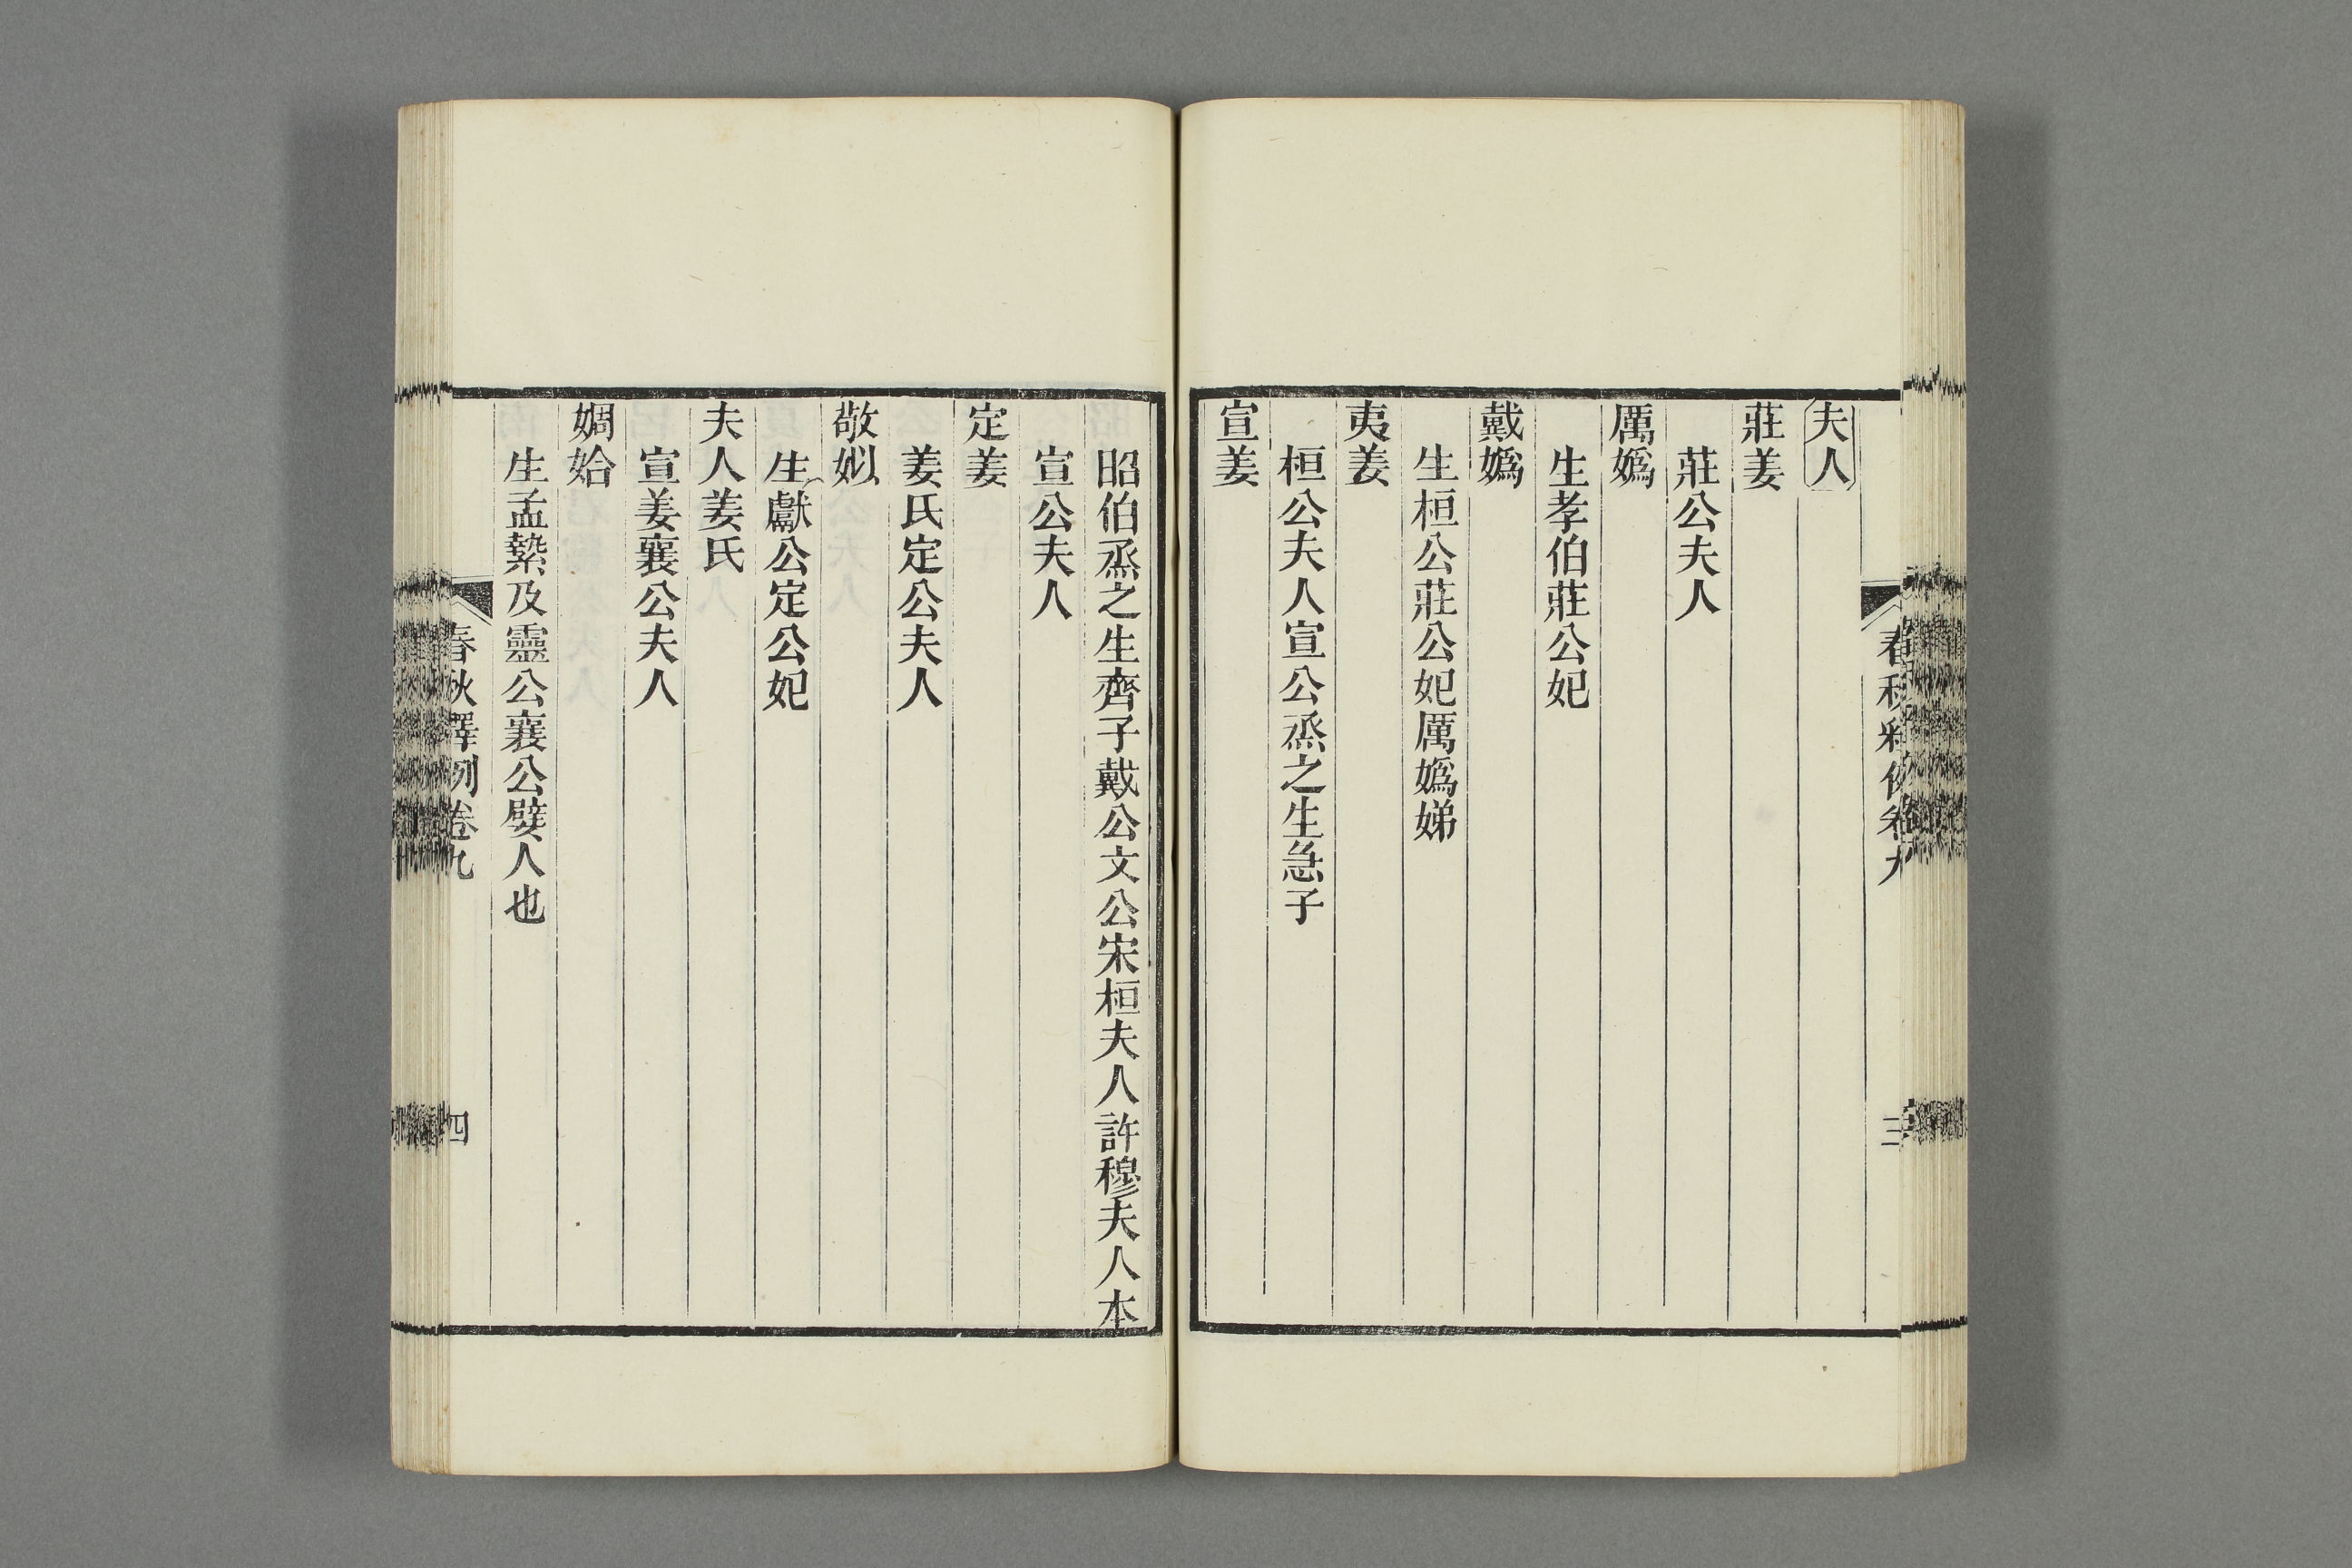 夫人
莊姜
莊公夫人
厲嬀
生孝伯莊公妃
戴嬀
生桓公莊公妃厲嬀娣
夷姜
桓公夫人宣公烝之生急子
宣姜
昭伯烝之生齊子戴公文公宋桓夫人許穆夫人本
宣公夫人
定姜
姜氏定公夫人
敬姒
生獻公定公妃
夫人姜氏
宣姜襄公夫人
婤姶
生孟縶及靈公襄公嬖人也
春秋釋例卷九
四